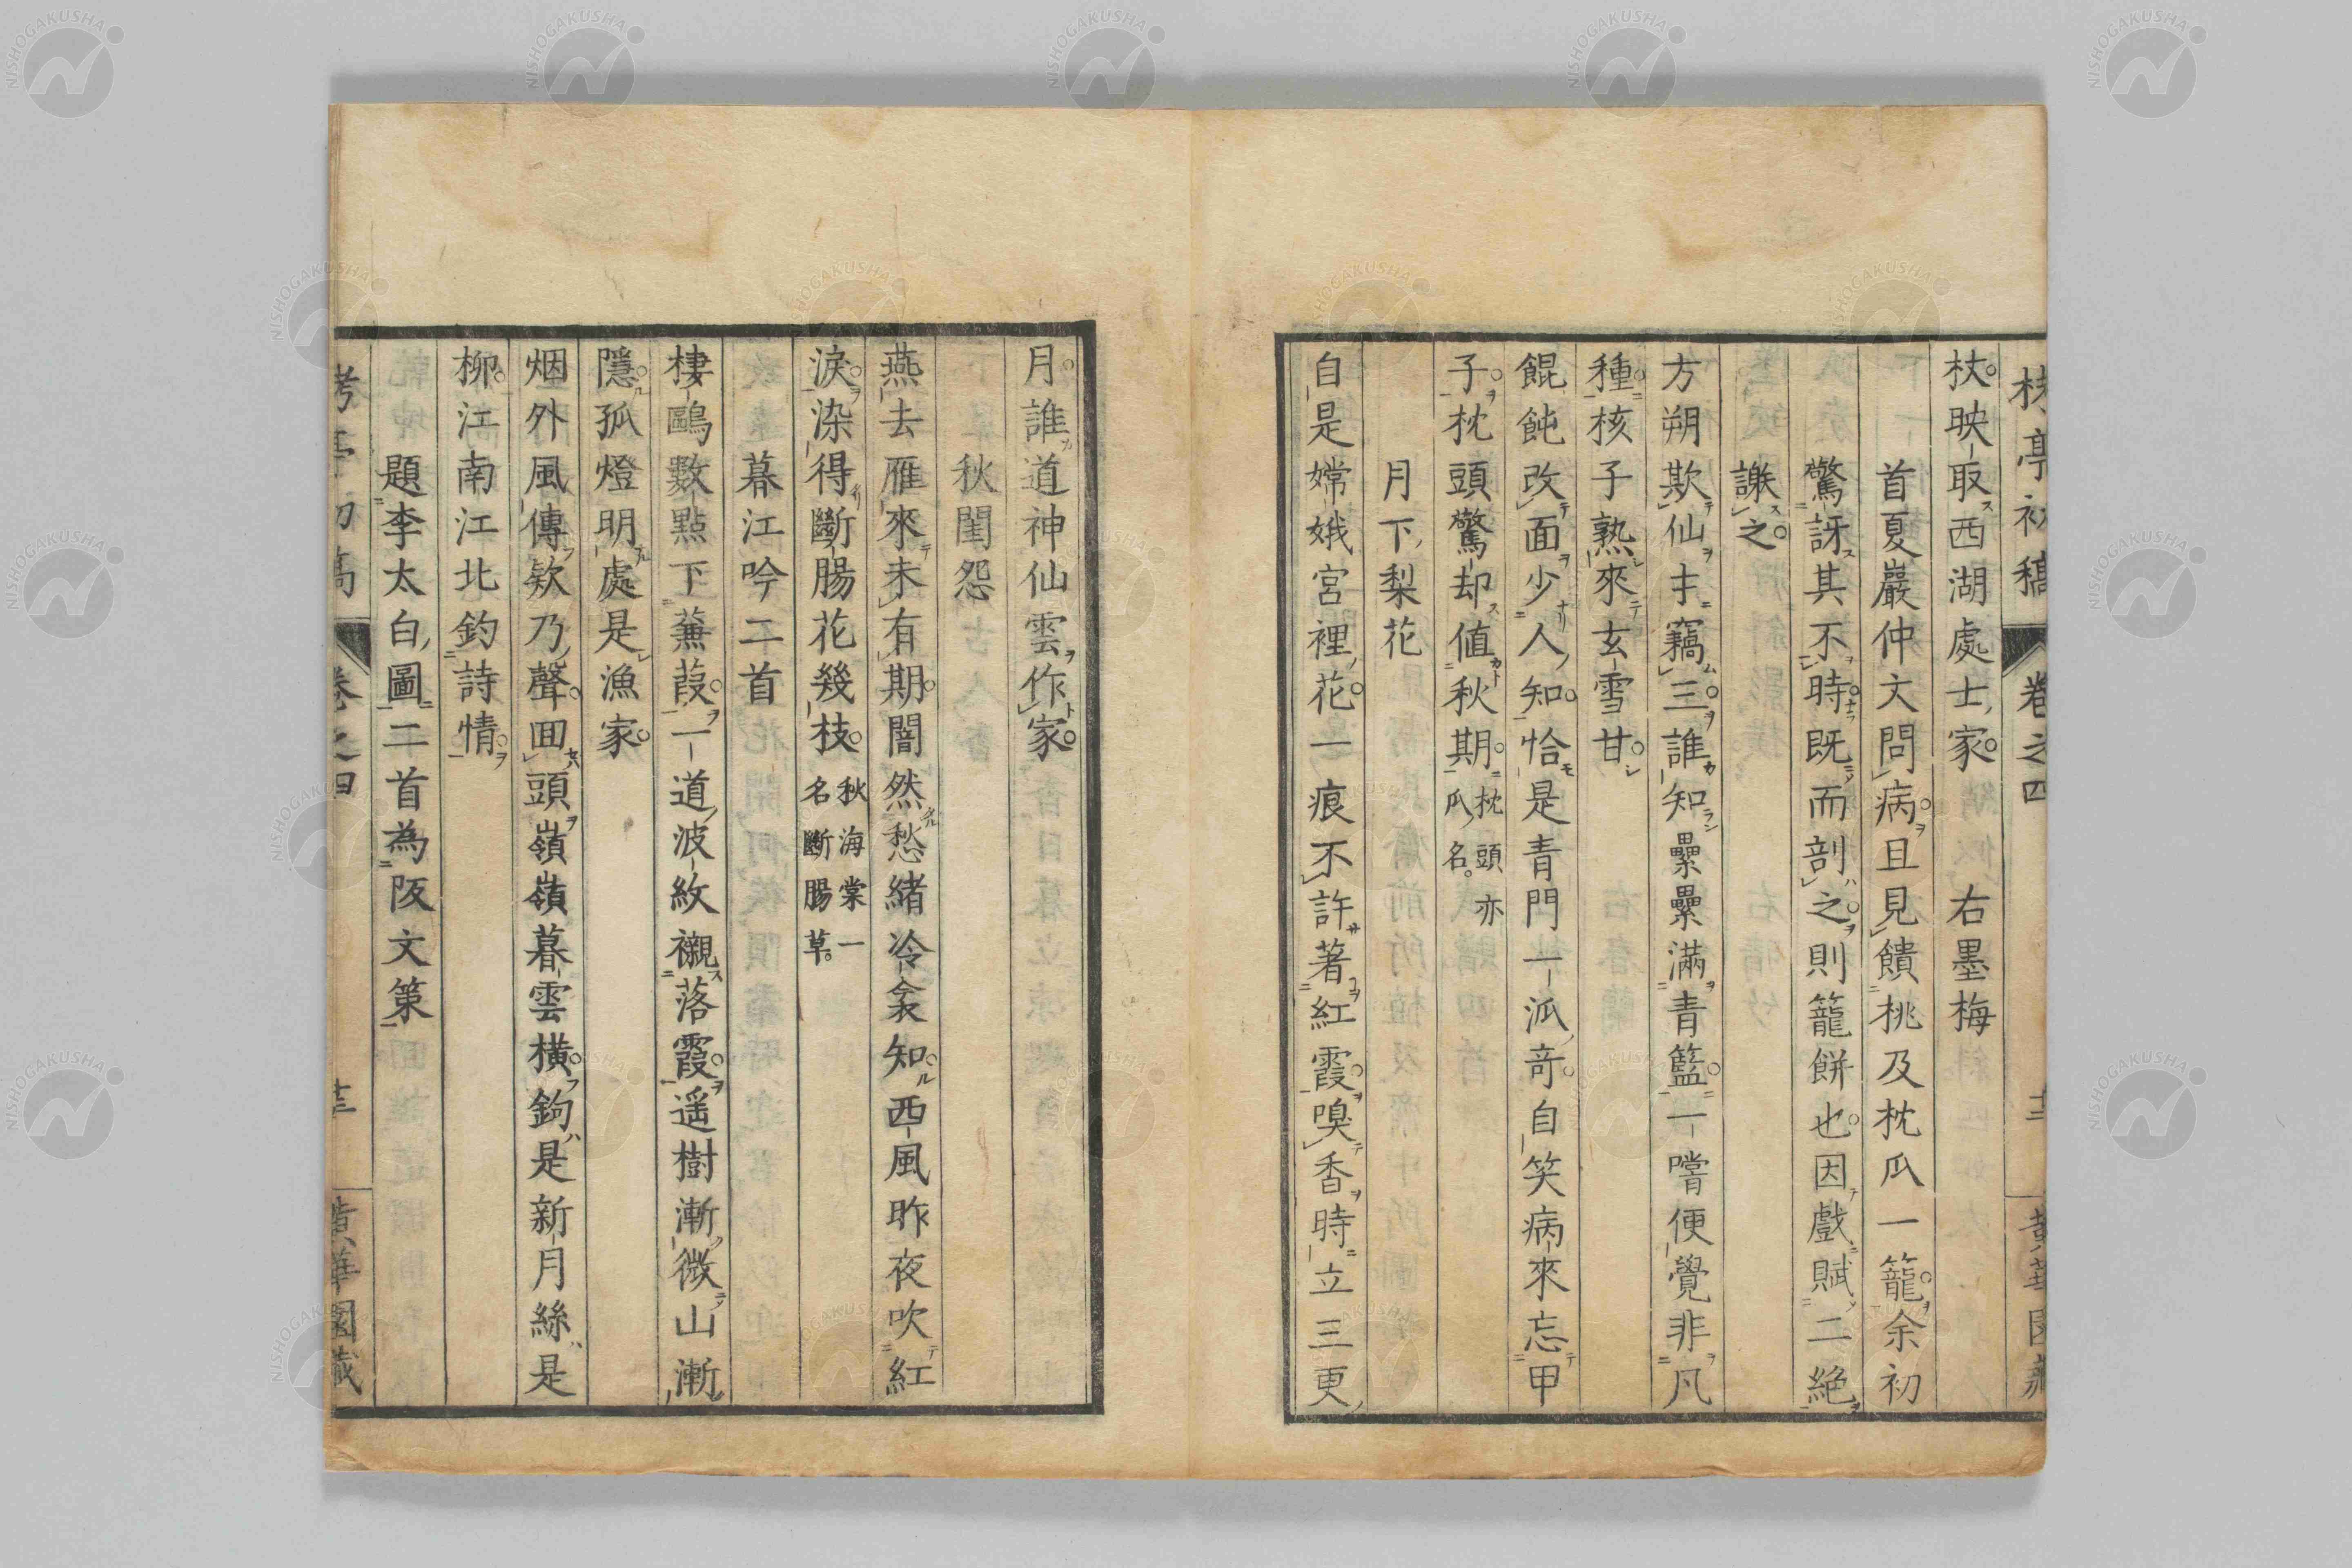 杖映取西湖處士家　右墨梅
首夏巖仲文問病且見饋桃及枕瓜一籠余初
驚訝其不時既而剖之則籠餅也因戲賦二絶
謝之
方朔欺仙才竊三誰知纍纍滿青籃一嚐便覺非凡
種核子熟來玄雪甘
餛飩改面少人知恰是青門一派奇自笑病來忘甲
子枕頭驚却值秋期枕頭亦瓜名
月下梨花
自是嫦娥宮裡花一痕不許著紅霞嗅香時立三更
月誰道神仙雲作家
秋閨怨
燕去雁來未有期闇然愁緒冷衾知西風昨夜吹紅
淚染得斷腸花幾枝秋海棠一名斷腸草
暮江吟二首
棲鷗數點下蒹葭一道波紋襯落霞遥樹漸微山漸
隱孤燈明處是漁家
烟外風傳欸乃聲回頭嶺嶺暮雲橫鉤是新月絲是
柳江南江北釣詩情
題李太白圖二首為阪文策
卷之四
黄華園藏
NISHOGAKUSHA